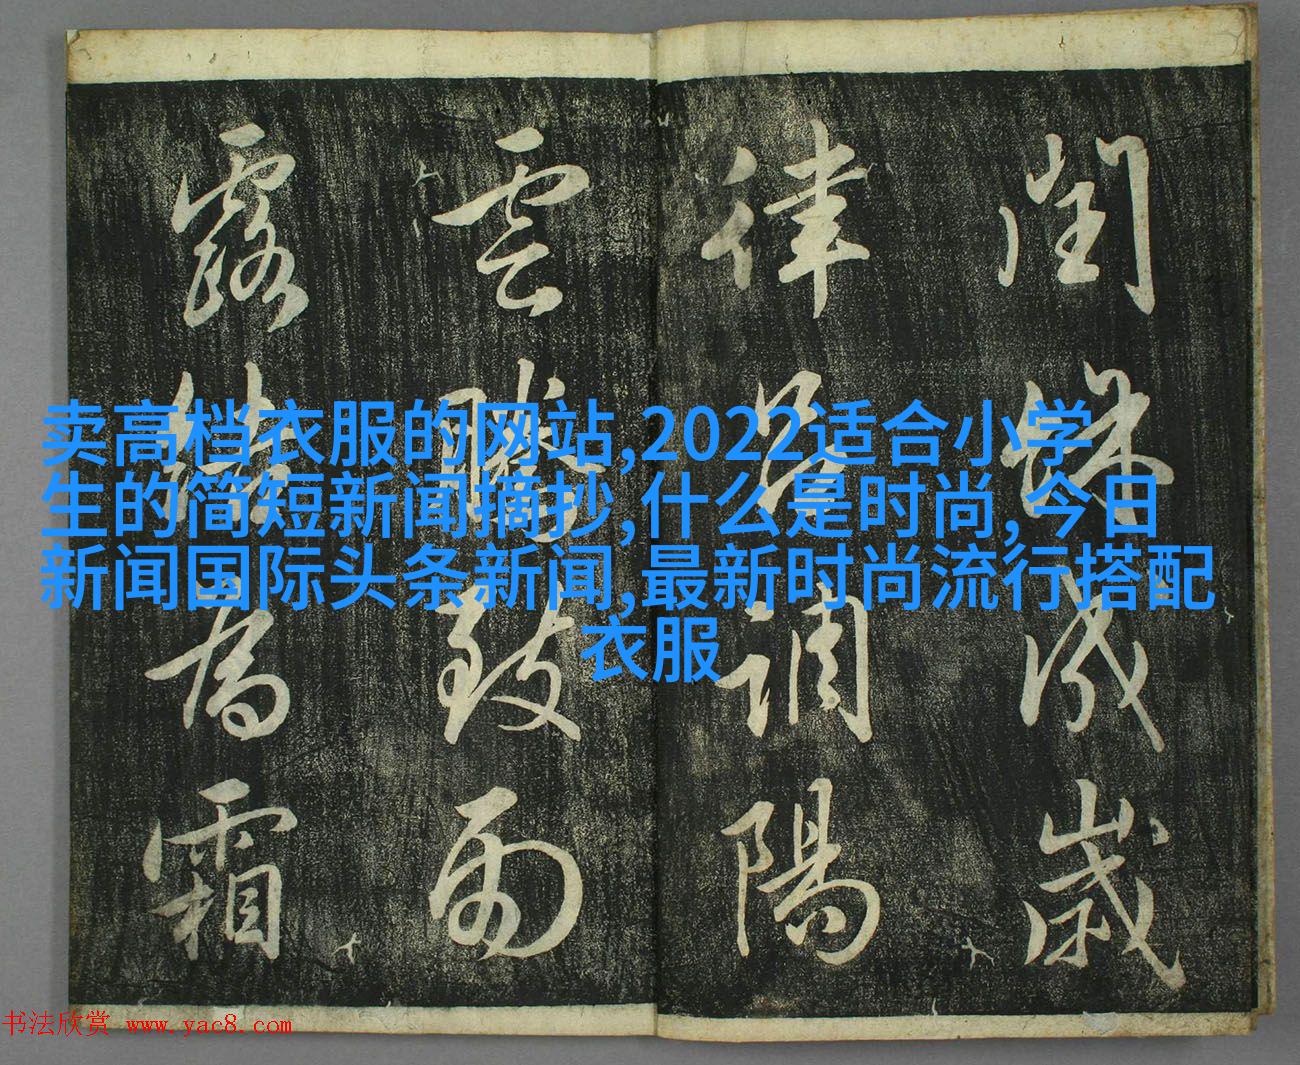 閏餘成歲
律呂調陽
雲騰致雨
露結為霜
卖高档衣服的网站,2022适合小学
生的简短新闻摘抄,什么是时尚,今日
新闻国际头条新闻,最新时尚流行搭配
衣服
书法欣赏 www.yac8.com